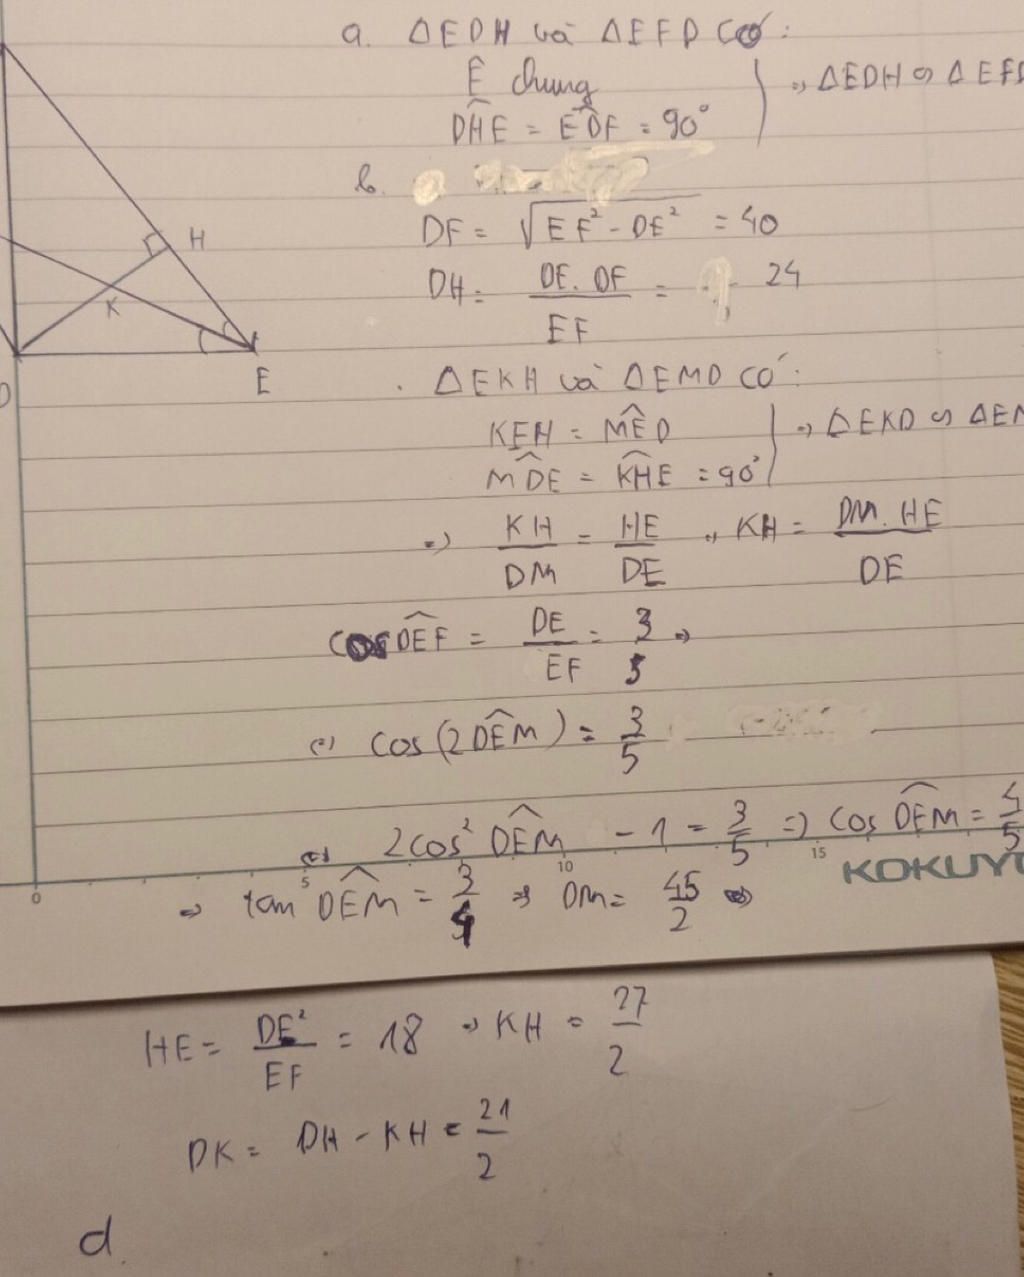 a. ΔEDH và ΔEFD có:
Ê chung
DĤE = ED̂F = 90°
=> ΔEDH ∽ ΔEFD
b.
DF = √(EF² - DE²) = 40
DH = DE. DF / EF = 24
H
K
E
D
. ΔEKH và ΔEMD có:
KEH = MÊD
MD̂E = KĤE = 90°
=> ΔEKD ∽ ΔEM
=> KH / DM = HE / DE => KH = DM. HE / DE
cos DÊF = DE / EF = 3 / 5 =>
(=) cos(2DÊM) = 3 / 5
(=) 2cos² DÊM - 1 = 3 / 5 => cos DÊM = 4 / 5
0 5 10 15
KOKUYO
=> tan DÊM = 3 / 4 => DM = 45 / 2 =>
HE = DE² / EF = 18 => KH = 27 / 2
DK = DH - KH = 21 / 2
d